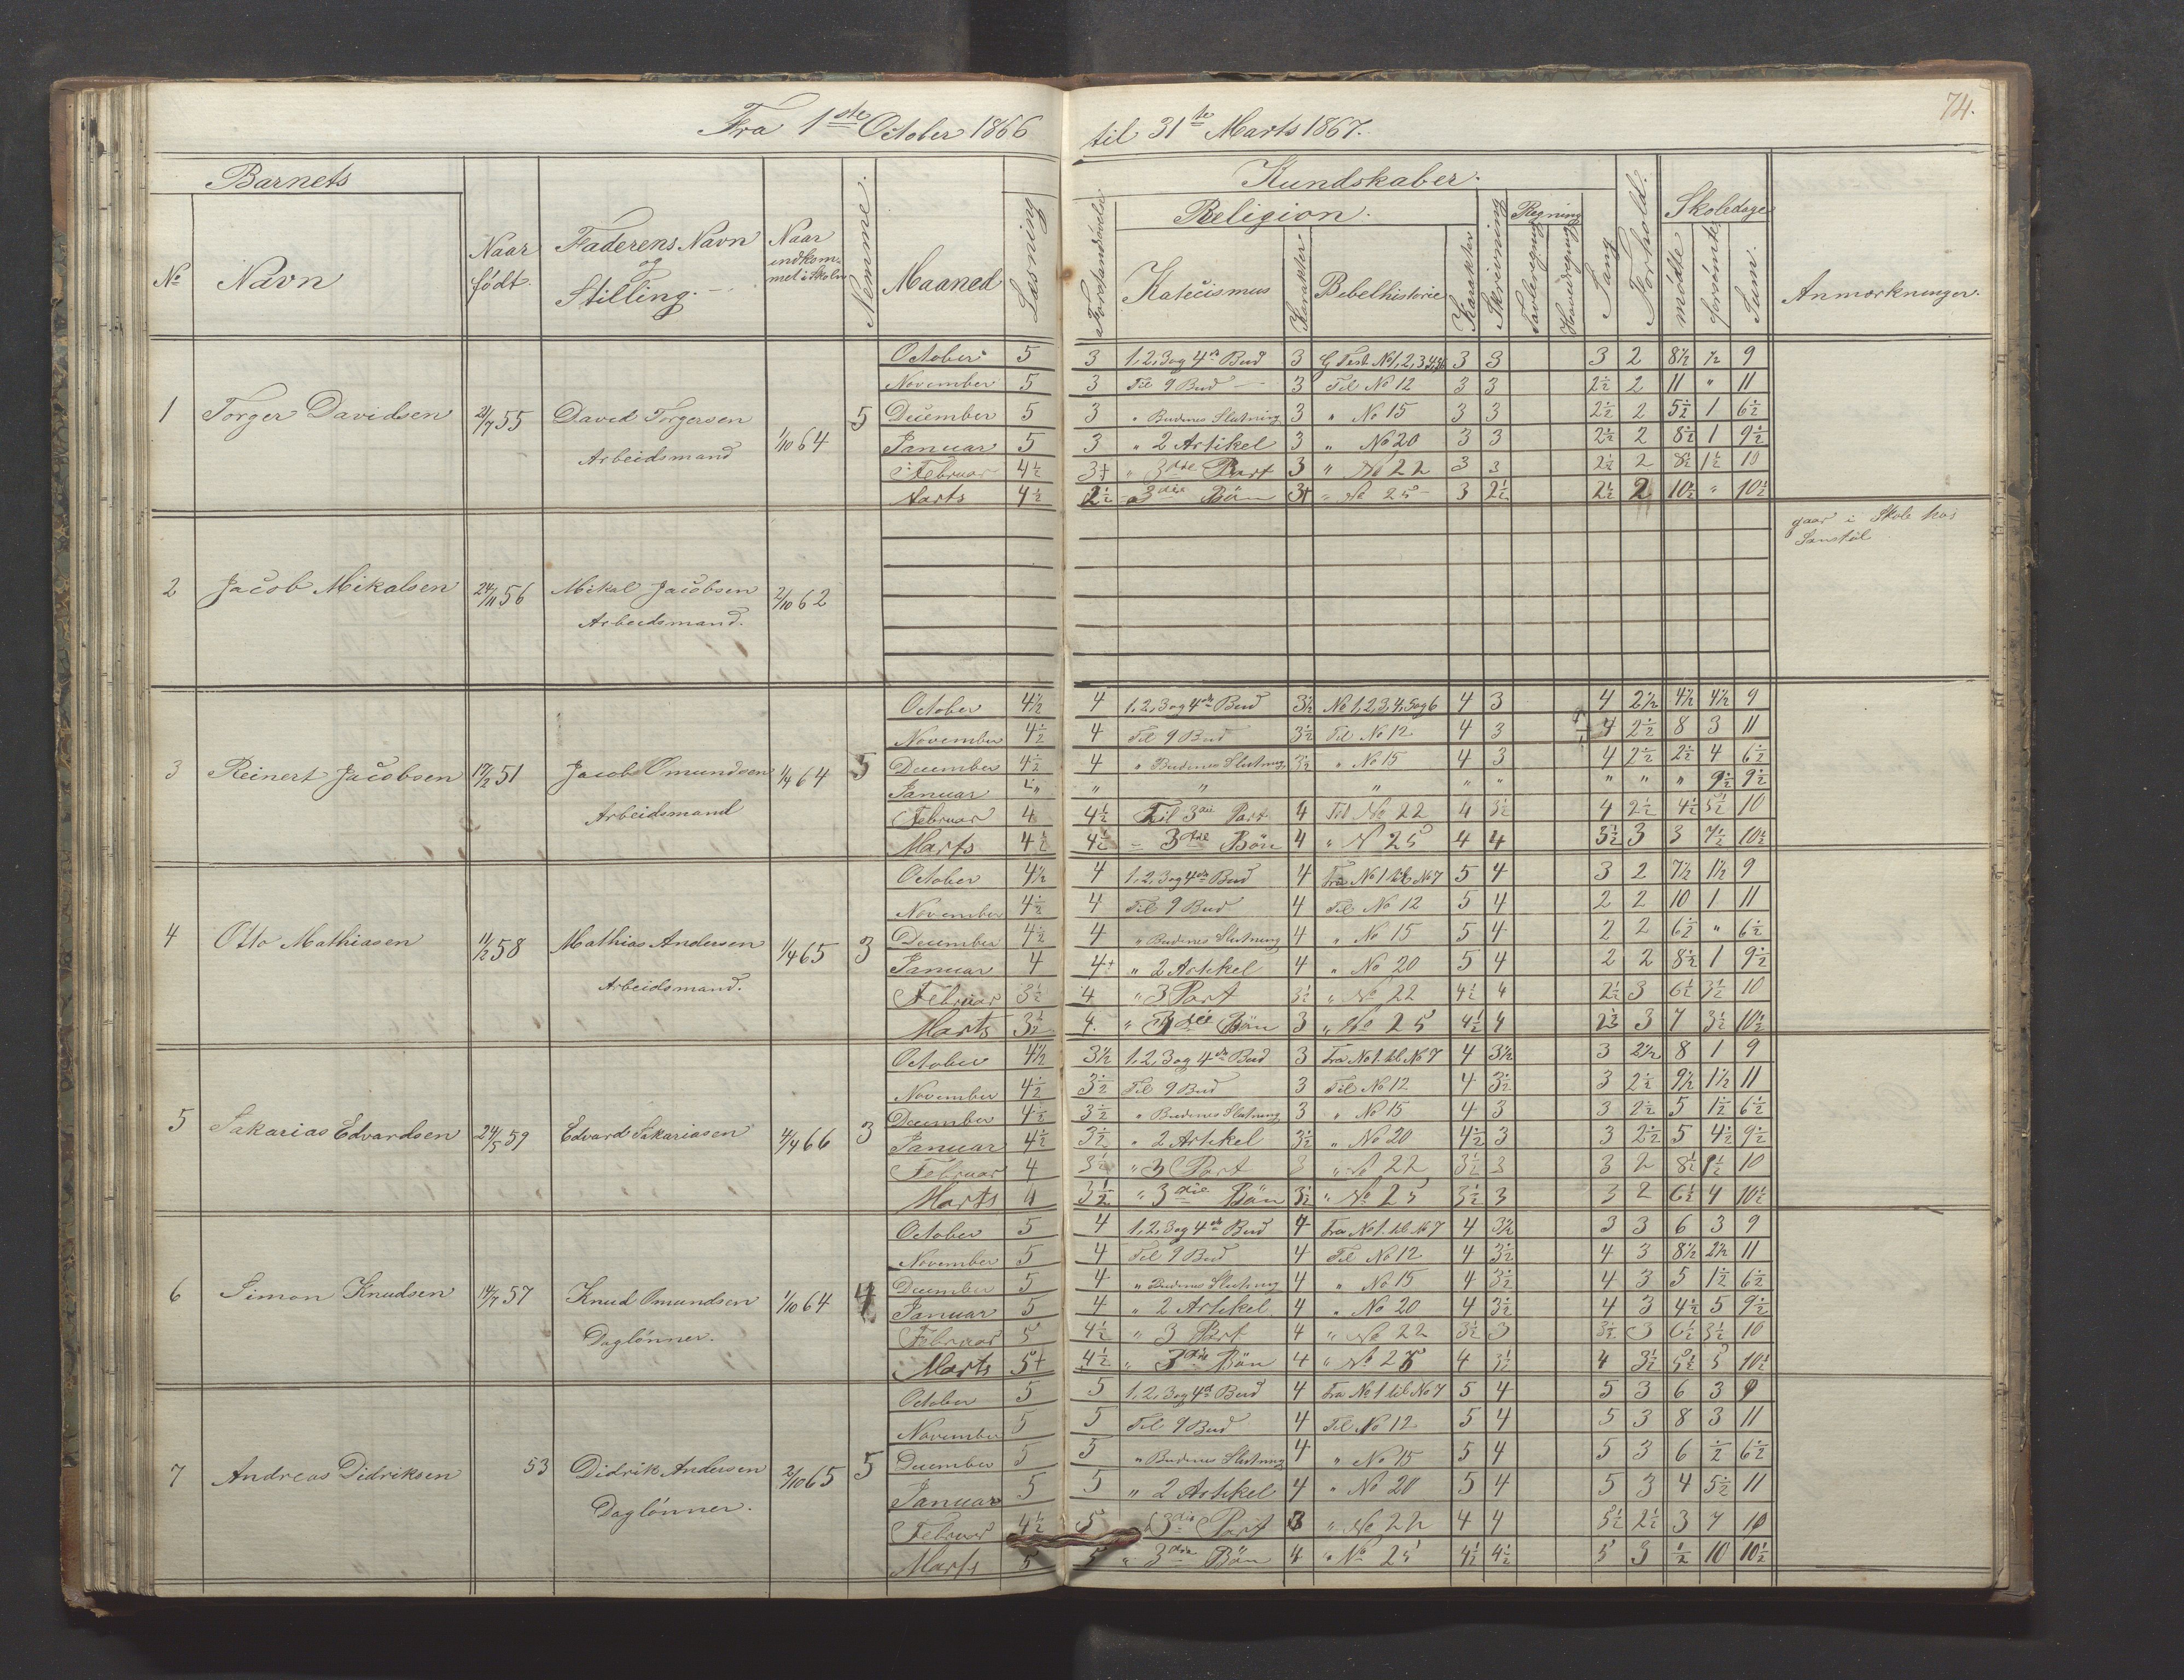 74.
Fra 1ste October 1866 til 31te Marts 1867.
Barnets Kundskaber. Skoledage
No Navn Naar født. Faderens Navn og Stilling. Naar indkommet i Skolen Nemme. Maaned Læsning Forstandsøvelse Religion. Katecismus Karakter Bibelhistorie Karakter Skrivning Regning Tavleregning Hovedregning Sang Forhold. mødte forsømte Sum. Anmærkninger.
October 5 3 1, 2, 3 og 4de Bud 3 G Test. No 1, 2, 3, 4, 5, 6 3 3 3 2 8½ ½ 9
November 5 3 Til 9 Bud 3 Til No 12 3 3 2½ 2 11 " 11
1 Torger Davidsen 21/7 55 David Torgersen 1/10 64 5 December 5 3 " Budenes Slutning 3 " No 15 3 3 2½ 2 5½ 1 6½
Arbeidsmand Januar 5 3 " 2 Artikel 3 " No 20 3 3 2½ 2 8½ 1 9½
Februar 4½ 3+ " 3die Part 3 " No 22 3 3 2½ 2 8½ 1½ 10
Marts 4½ 2½ " 3die Bön 3+ " No 25 3 2½ 2½ 2 10½ " 10½
gaar i Skole hos
2 Jacob Mikalsen 24/11 56 Mikal Jacobsen 2/10 62
Arbeidsmand.
October 4½ 4 1, 2, 3 og 4de Bud 3½ No 1, 2, 3, 4, 5 og 6 4 3 4 2½ 4½ 4½ 9
November 4½ 4 Til 9 Bud 3½ Til No 12 4 3 4 2½ 8 3 11
3 Reinert Jacobsen 17/2 51 Jacob Omundsen 1/4 64 5 December 4½ 4 " Budenes Slutning 3½ " No 15 4 3 4 2½ 2½ 4 6½
Arbeidsmand Januar " " " " " " " " " 9½ 9½
Februar 4 4½ Til 3die Part 4 Til No 22 4 3½ 4 2½ 4½ 5½ 10
Marts 4½ 4½ " 3die Bön 4 " No 25 4 4 3½ 3 3 7½ 10½
October 4½ 4 1, 2, 3 og 4de Bud 4 Fra No 1 til No 7 5 4 3 2 7½ 1½ 9
November 4½ 4 Til 9 Bud 4 Til No 12 5 4 2 2 10 1 11
4 Otto Mathiasen 11/2 58 Mathias Andersen 1/4 65 3 December 4½ 4 " Budenes Slutning 4 " No 15 5 4 2 2 6½ " 6½
Arbeidsmand. Januar 4 4+ " 2 Artikel 4 " No 20 5 4 2 2 8½ 1 9½
Februar 3½ 4 " 3 Part 3½ " No 22 4½ 4 2½ 3 6½ 3½ 10
Marts 3½ 4. " 3die Bön 3 " No 25 4½ 4 2½ 3 7 3½ 10½
October 4½ 3½ 1, 2, 3 og 4de Bud 3 Fra No 1 til No 7 4 3½ 3 2½ 8 1 9
November 4½ 3½ Til 9 Bud 3 Til No 12 4 3½ 3 2½ 9½ 1½ 11
5 Sakarias Edvardsen 24/5 59 Edvard Sakariasen 4/4 66 3 December 4½ 3½ " Budenes Slutning 3 " No 15 4 3 3 2½ 5 1½ 6½
Januar 4½ 3½ " 2 Artikel 3½ " No 20 4½ 3 3 2½ 5 4½ 9½
Februar 4 3½ " 3 Part 3 " No 22 3½ 3 3 2 8½ 1½ 10
Marts 4 3½ " 3die Bön 3½ " No 25 3½ 3 3 2 6½ 4 10½
October 5 4 1, 2, 3 og 4de Bud 4 Fra No 1 til No 7 4 3½ 3 3 6 3 9
November 5 4 Til 9 Bud 4 Til No 12 4 3½ 4 3 8½ 2½ 11
6 Simon Knudsen 14/7 57 Knud Omundsen 1/10 64 4 December 5 4 " Budenes Slutning 4 " No 15 4 3½ 4 3 5 1½ 6½
Daglønner. Januar 5 4 " 2 Artikel 4 " No 20 4 3½ 4 3 4½ 5 9½
Februar 5 4½ " 3 Part 4 " No 22 3½ 3 3½ 3 6½ 3½ 10
Marts 5+ 4½ " 3die Bön 4 " No 25 4 3½ 4 3½ 5½ 5 10½
October 5 5 1, 2, 3 og 4de Bud 4 Fra No 1 til No 7 5 4 5 3 6 3 9
November 5 5 Til 9 Bud 4 Til No 12 5 4 5 3 8 3 11
7 Andreas Didriksen 53 Didrik Andersen 2/10 65 5 December 5 5 " Budenes Slutning 4 " No 15 5 4 5 3 6 ½ 6½
Daglønner. Januar 5 5 " 2 Artikel 4 " No 20 5 4 5 3 4 5½ 11
Februar 4½ 5 3die Part 3 " No 22 4 4 5½ 2½ 3 7 10
Marts 5 5 " 3die Bön 4 " No 25 4½ 4½ 5 3 ½ 10 10½